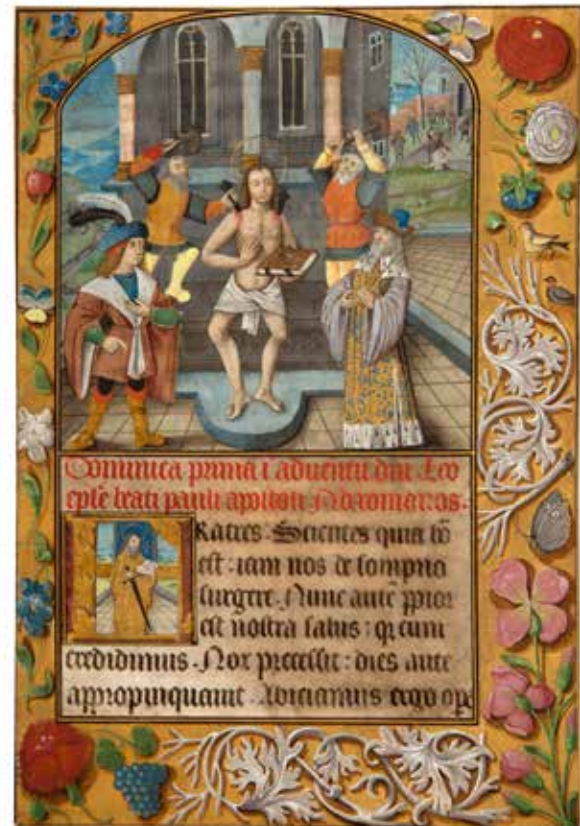 Dominica prima i aduentu dni. Lco
eple beati pauli apostoli Ad romanos.
Fratres. Scientes quia ho
est: iam nos de sompno
surgere. Nunc aute ppior
est nostra salus: q cum
credidimus. Nox precessit: dies aute
appropinquauit. Abiciamus ergo ope